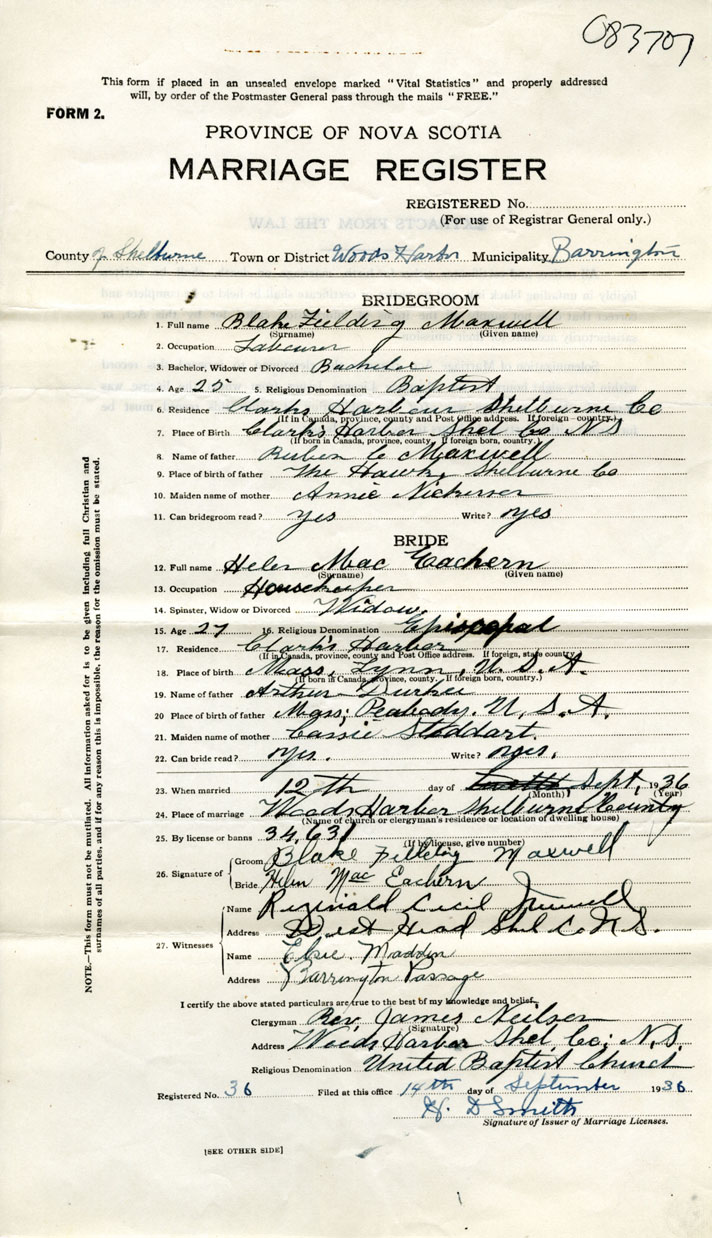 083707
This form if placed in an unsealed envelope marked "Vital Statistics" and properly addressed
will, by order of the Postmaster General pass through the mails "FREE."
FORM 2.
PROVINCE OF NOVA SCOTIA
MARRIAGE REGISTER
REGISTERED No.
(For use of Registrar General only.)
County of Shelburne Town or District Woods Harbor Municipality Barrington
BRIDEGROOM
1. Full name Blake Fielding Maxwell
(Surname) (Given name)
2. Occupation Labourer
3. Bachelor, Widower or Divorced Bachelor
4. Age 25 5. Religious Denomination Baptist
6. Residence Clarks Harbour Shelburne Co
(If in Canada, province, county and Post Office address. If foreign, state country.)
7. Place of Birth Clarks Harbor Shel Co N S
(If born in Canada, province, county. If foreign born, country.)
8. Name of father Ruben C Maxwell
9. Place of birth of father The Hawk, Shelburne Co
10. Maiden name of mother Annie Nickerson
11. Can bridegroom read? yes Write? yes
BRIDE
12. Full name Helen Mac Eachern
(Surname) (Given name)
13. Occupation Housekeeper
14. Spinster, Widow or Divorced Widow
15. Age 27 16. Religious Denomination Episcopal
17. Residence Clark's Harbor
(If in Canada, province, county and Post Office address. If foreign, state country.)
18. Place of birth Mass, Lynn, U. S. A.
(If born in Canada, province, county. If foreign born, country.)
19. Name of father Arthur Durkee
20 Place of birth of father Mass; Peabody. U. S. A.
21. Maiden name of mother Cassie Stoddart.
22. Can bride read? yes. Write? yes.
23. When married 12th day of Sept, 1936
(Month) (Year)
24. Place of marriage Woods Harbor Shelburne County
(Name of church or clergyman's residence or location of dwelling house)
25. By license or banns 34,631
(If by license, give number)
26. Signature of Groom Blake Maxwell
Bride Helen Mac Eachern
27. Witnesses Name Reginald Cecil
Address West Head Shel Co N. S.
Name Elsie Madden
Address Barrington Passage
I certify the above stated particulars are true to the best of my knowledge and belief.
Clergyman Rev. James Neilson
(Signature)
Address Woods Harbor Shel Co; N. S.
Religious Denomination United Baptist Church
Registered No. 36 Filed at this office 14th day of September 1936
H. D Smith
Signature of Issuer of Marriage Licenses.
[SEE OTHER SIDE]
NOTE.—This form must not be mutilated. All information asked for is to be given including full Christian and
surnames of all parties, and if for any reason this is impossible, the reason for the omission must be stated.